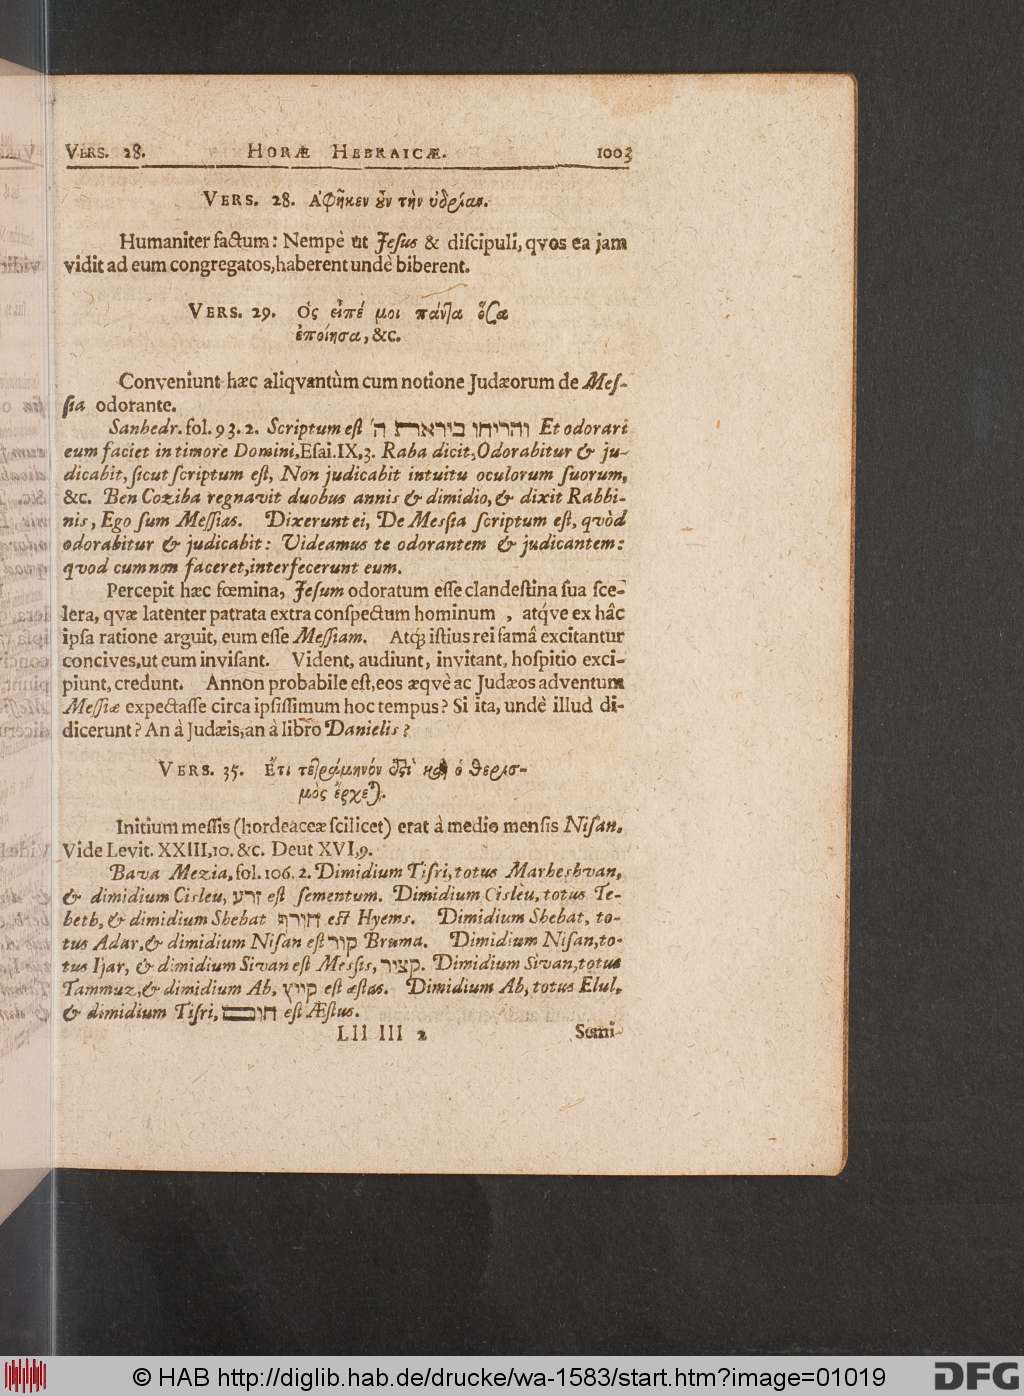 VERS. 28. HORÆ HEBRAICÆ. 1003
VERS. 28. Ἀφῆκεν ȣ̓ν τὴν ὑδρίαν.
Humaniter factum: Nempè ut Jesus & discipuli, qvos ea jam
vidit ad eum congregatos, haberent undè biberent.
VERS. 29. Ὃς εἶπέ μοι πάντα ὅσα
ἐποίησα, &c.
Conveniunt hæc aliqvantùm cum notione Judæorum de Mes-
sia odorante.
Sanhedr. fol. 93. 2. Scriptum est והריחו ביראת ה' Et odorari
eum faciet in timore Domini, Esai. IX, 3. Raba dicit, Odorabitur & ju-
dicabit, sicut scriptum est, Non judicabit intuitu oculorum suorum,
&c. Ben Coziba regnavit duobus annis & dimidio, & dixit Rabbi-
nis, Ego sum Messias. Dixerunt ei, De Messia scriptum est, qvòd
odorabitur & judicabit: Videamus te odorantem & judicantem:
quod cum non faceret, interfecerunt eum.
Percepit hæc fœmina, Jesum odoratum esse clandestina sua sce-
lera, qvæ latenter patrata extra conspectum hominum, atq́ve ex hâc
ipsa ratione arguit, eum esse Messiam. Atq; istius rei famâ excitantur
concives, ut eum invisant. Vident, audiunt, invitant, hospitio exci-
piunt, credunt. Annon probabile est, eos æqvè ac Judæos adventum
Messiæ expectasse circa ipsissimum hoc tempus? Si ita, undè illud di-
dicerunt? An à Judæis, an à libro Danielis?
VERS. 35. Ἔτι τετράμηνόν ὅτι καὶ ὁ θερισ-
μὸς ἔρχεται.
Initium messis (hordeaceæ scilicet) erat à medio mensis Nisan.
Vide Levit. XXIII, 10. &c. Deut XVI, 9.
Bava Mezia, fol. 106. 2. Dimidium Tisri, totus Marheshvan,
& dimidium Cisleu, זרע est sementum. Dimidium Cislèu, totus Te-
beth, & dimidium Shebat חורף est Hyems. Dimidium Shebat, to-
tus Adar, & dimidium Nisan est קור Bruma. Dimidium Nisan, to-
tus Ijar, & dimidium Sivan est Messis, קציר. Dimidium Sivan, totus
Tammuz, & dimidium Ab, קייץ est æstas. Dimidium Ab, totus Elul,
& dimidium Tisri, חום est Æstus.
Lll lll 2 Semi-
© HAB http://diglib.hab.de/drucke/wa-1583/start.htm?image=01019
DFG